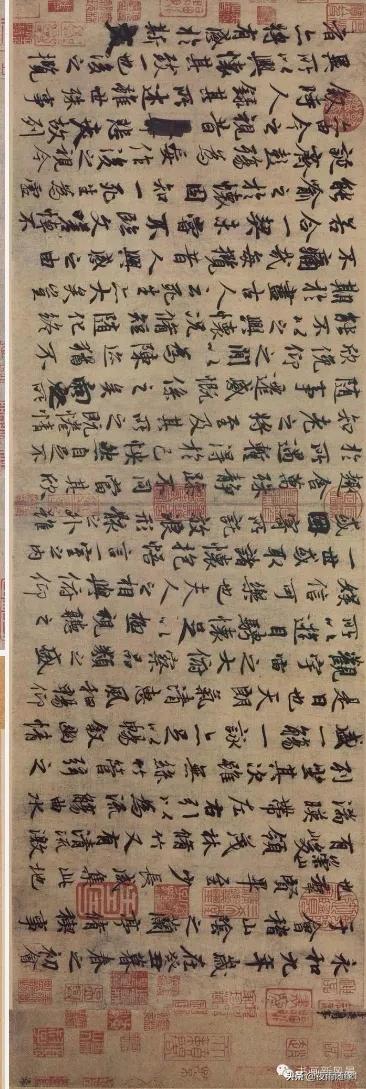 永和九年歲在癸丑暮春之初會
于會稽山陰之蘭亭脩稧事
也羣賢畢至少長咸集此地
有崇山峻領茂林脩竹又有清流激
湍暎帶左右引以為流觴曲水
列坐其次雖無絲竹管弦之
盛一觴一詠亦足以暢敘幽情
是日也天朗氣清惠風和暢仰
觀宇宙之大俯察品類之盛
所以遊目騁懷足以極視聽之
娛信可樂也夫人之相與俯仰
一世或取諸懷抱悟言一室之內
或因寄所託放浪形骸之外雖
趣舍萬殊靜躁不同當其欣
於所遇暫得於己怏然自足不
知老之將至及其所之既惓情
隨事遷感慨係之矣向之所
欣俛仰之間以為陳迹猶不
能不以之興懷況脩短隨化終
期於盡古人云死生亦大矣豈
不痛哉每攬昔人興感之由
若合一契未嘗不臨文嗟悼不
能喻之於懷固知一死生為虛
誕齊彭殤為妄作後之視今
亦由今之視昔悲夫故列
敘時人錄其所述雖世殊事
異所以興懷其致一也後之攬
者亦將有感於斯文
头条